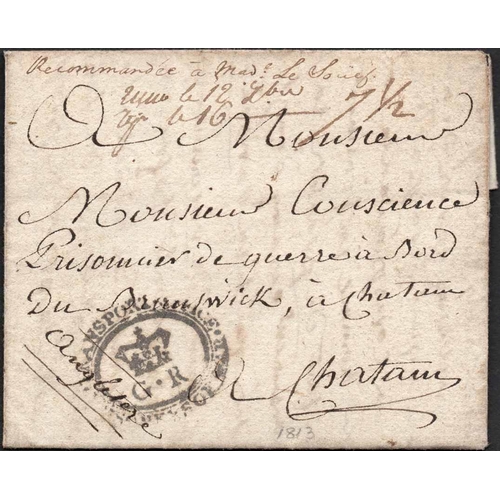 Recommandée à Mad.e Le
le 12
le 16
7 1/2
A Monsieur
Monsieur Conscience
Prisonnier de guerre à Bord
Du Brunswick, à Chatam
Angleterre
TRANSPORT OFFICE
G·R
PRISONERS OF WAR
à Chatam
1813